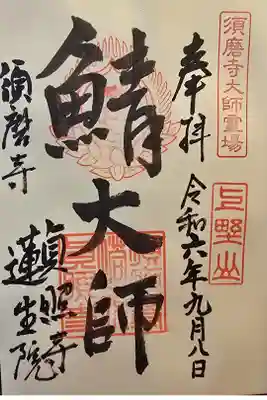 須磨寺大師霊場
上野山
奉拝
令和六年九月八日
鯖大師
須磨寺
貞照寺
蓮生院